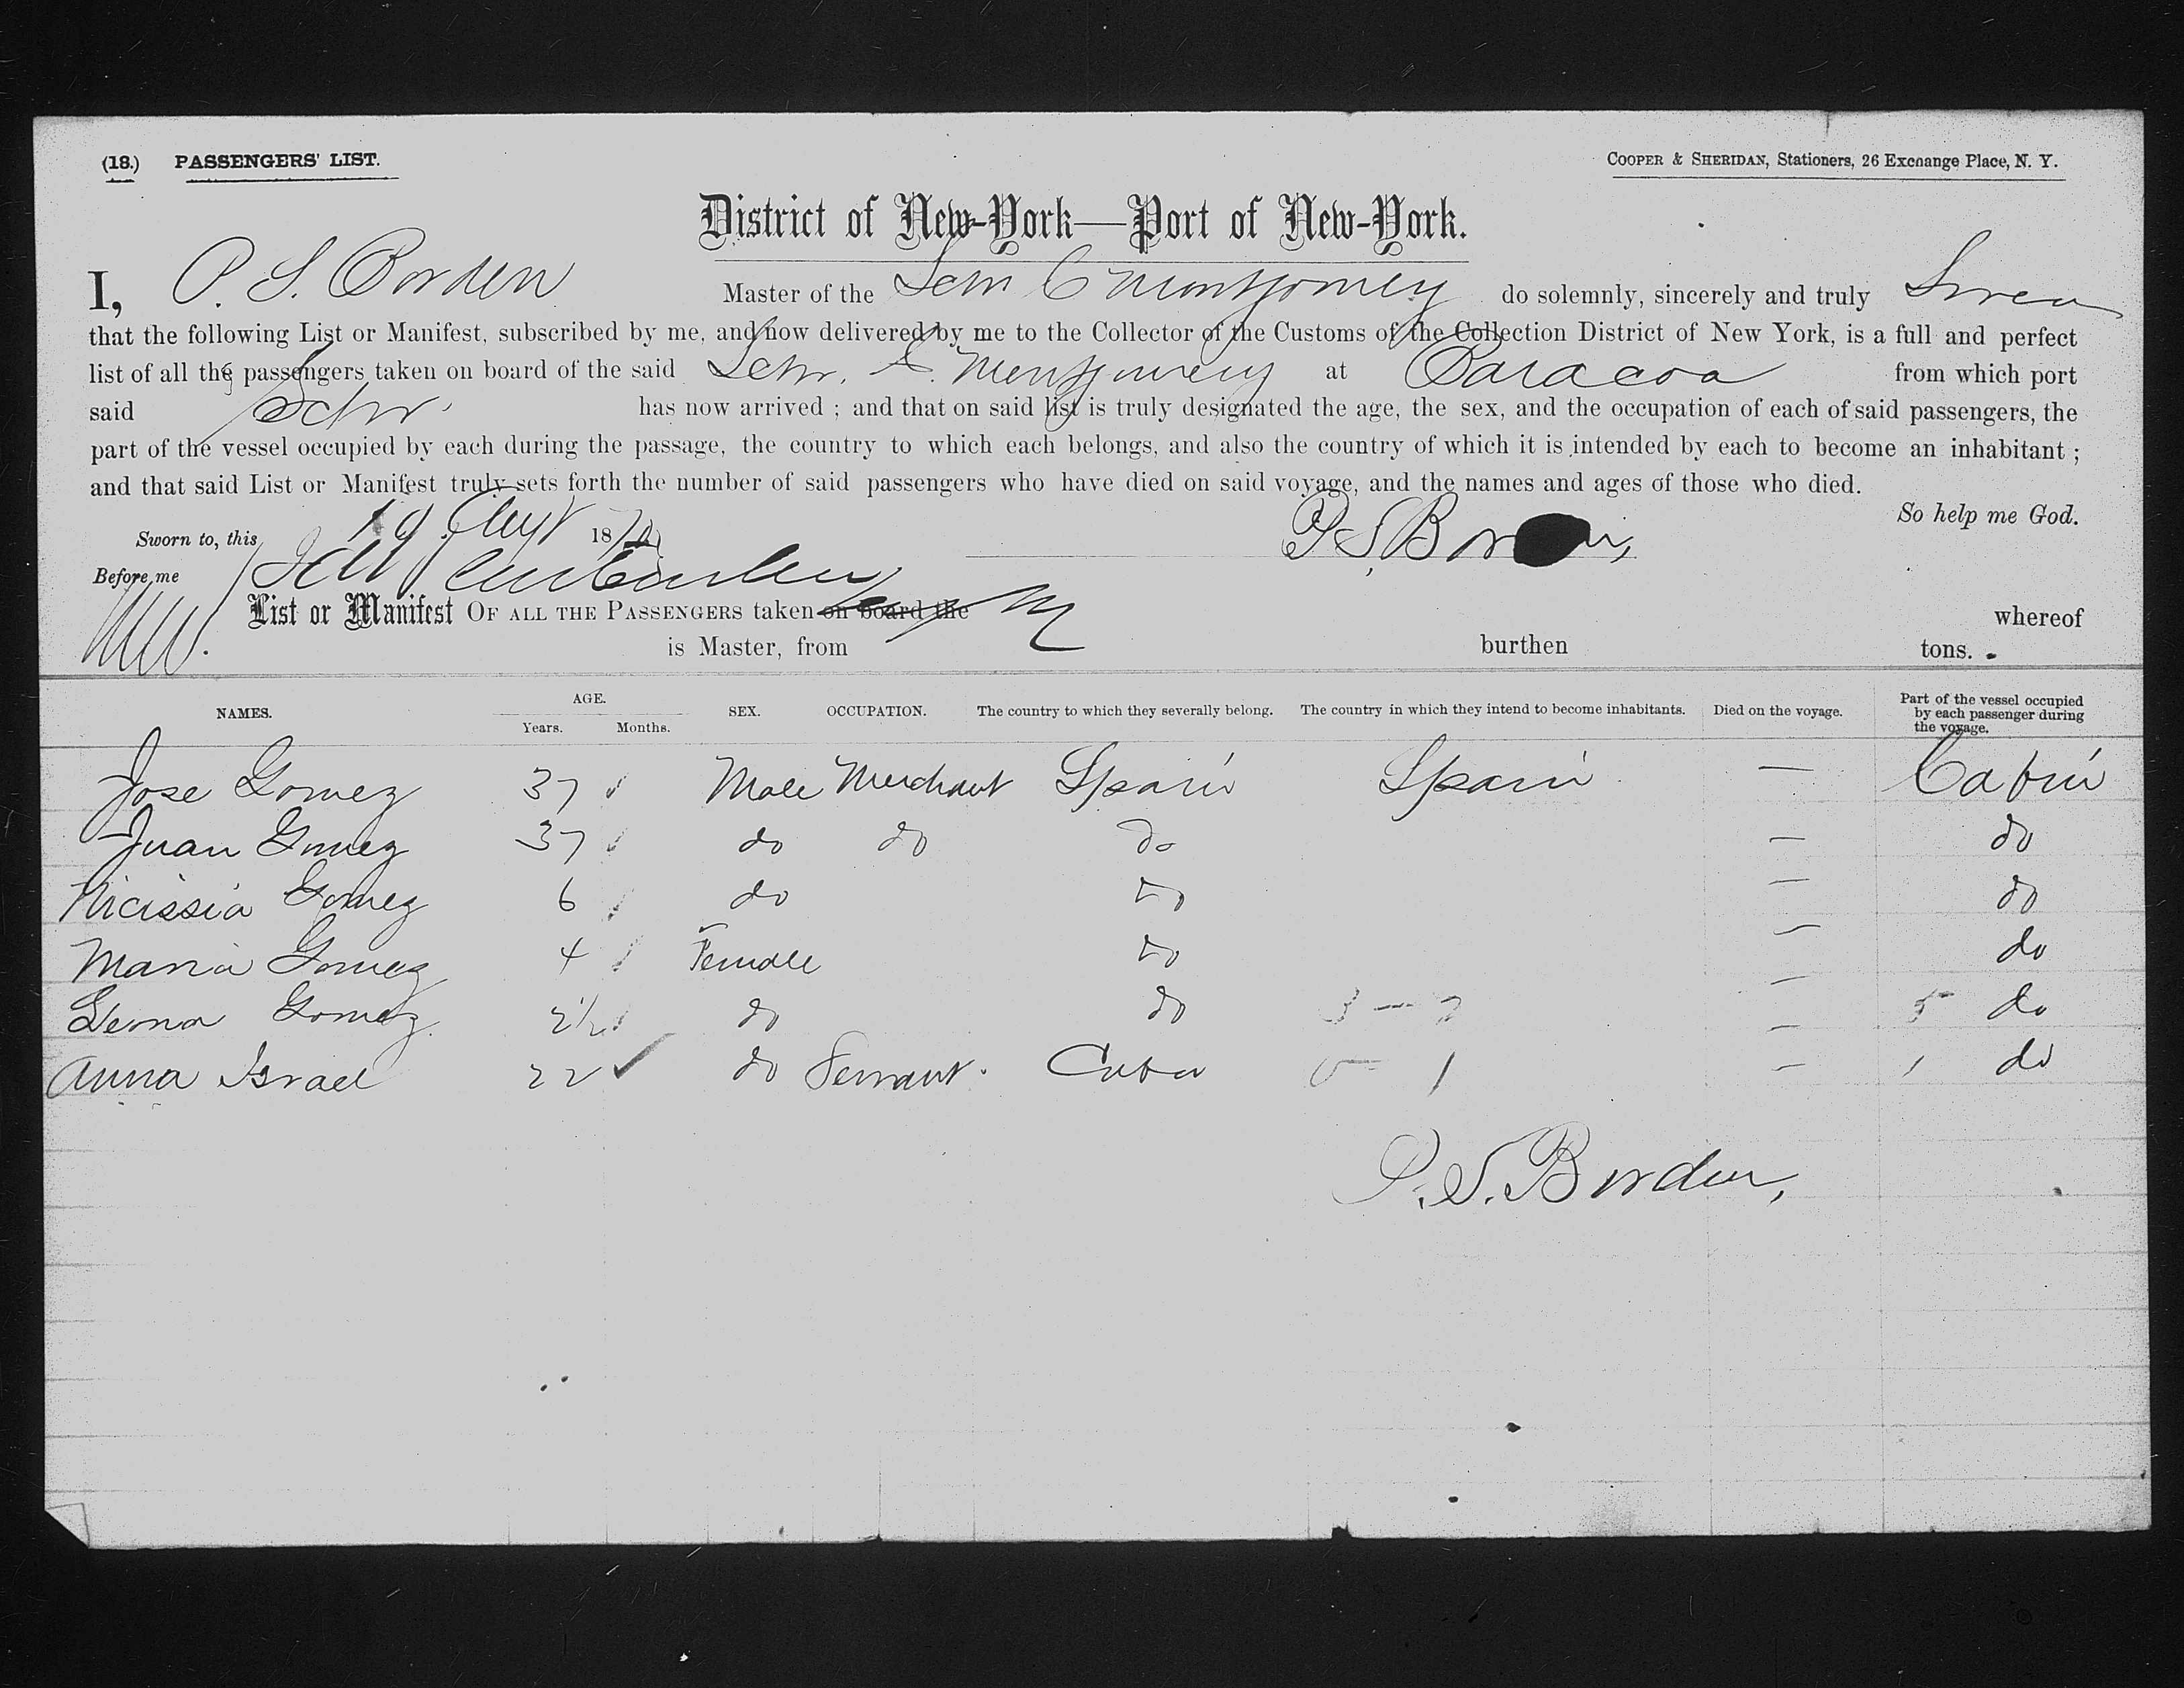 (18.) PASSENGERS' LIST. COOPER & SHERIDAN, Stationers, 26 Exchange Place, N. Y.
District of New-York—Port of New-York.
I, P. S. Borden Master of the Schr C Montgomery do solemnly, sincerely and truly Swear
that the following List or Manifest, subscribed by me, and now delivered by me to the Collector of the Customs of the Collection District of New York, is a full and perfect
list of all the passengers taken on board of the said Schr. C. Montgomery at Baracoa from which port
said Schr. has now arrived ; and that on said list is truly designated the age, the sex, and the occupation of each of said passengers, the
part of the vessel occupied by each during the passage, the country to which each belongs, and also the country of which it is intended by each to become an inhabitant ;
and that said List or Manifest truly sets forth the number of said passengers who have died on said voyage, and the names and ages of those who died.
So help me God.
Sworn to, this 19 Augt 187 P. S. Borden
Before me
List or Manifest OF ALL THE PASSENGERS taken on board the whereof
is Master, from burthen tons.
NAMES. AGE. Years. Months. SEX. OCCUPATION. The country to which they severally belong. The country in which they intend to become inhabitants. Died on the voyage. Part of the vessel occupied by each passenger during the voyage.
Jose Gomez 37 Male Merchant Spain Spain — Cabin
Juan Gomez 37 do do do — do
Nicissia Gomez 6 do do — do
Maria Gomez 4 Female do — do
Gomez 2½ do do 3 — 2 — 5 do
Anna Israel 22 ✓ do Servant. Cuba 0 — 1 — 1 do
P. S. Borden,